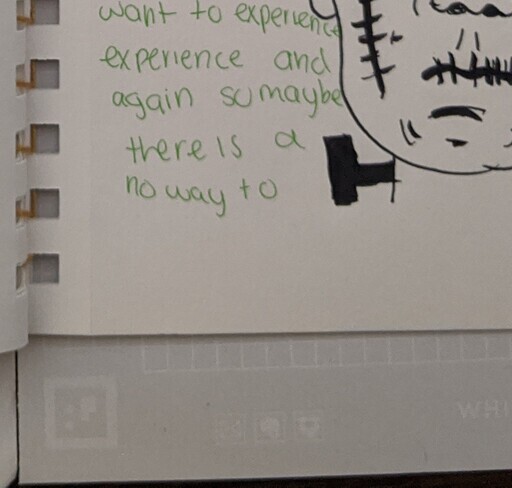 want to experience
experience and
again so maybe
there is a
no way to
WHI